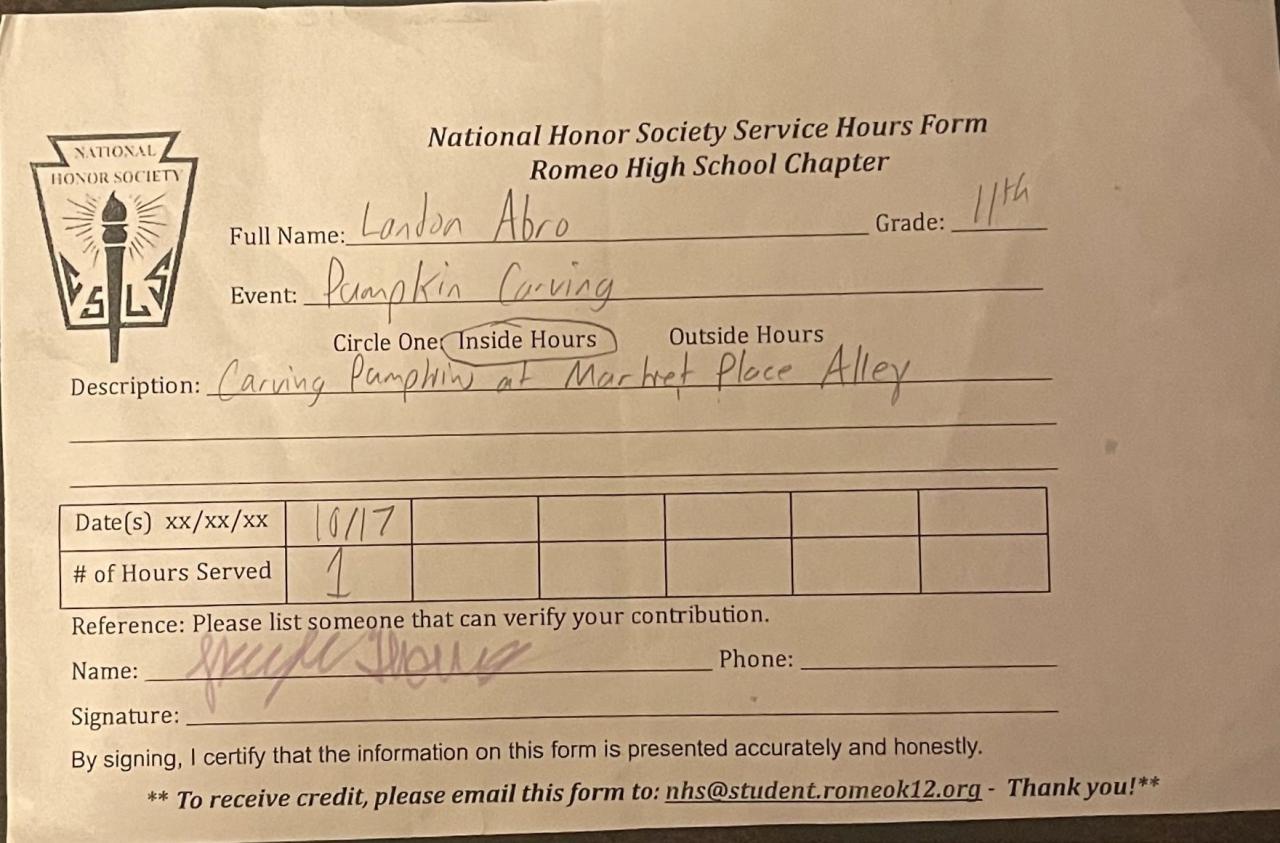 National Honor Society Service Hours Form
Romeo High School Chapter
NATIONAL
HONOR SOCIETY
C S L S
Full Name: Landon Abro Grade: 11th
Event: Pumpkin Carving
Circle One: Inside Hours Outside Hours
Description: Carving Pumpkins at Market Place Alley
Date(s) xx/xx/xx 10/17
# of Hours Served 1
Reference: Please list someone that can verify your contribution.
Name: Phone:
Signature:
By signing, I certify that the information on this form is presented accurately and honestly.
** To receive credit, please email this form to: nhs@student.romeok12.org - Thank you!**